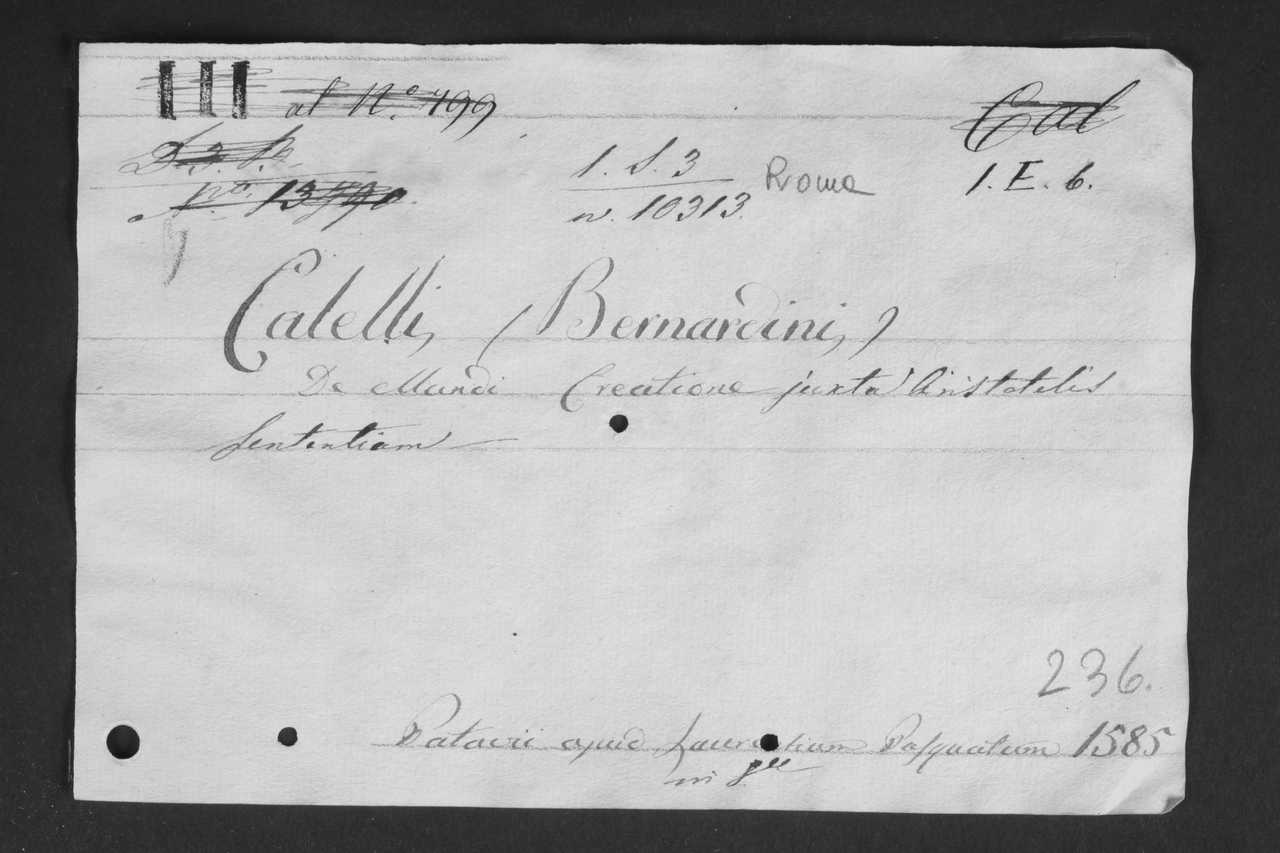 III al N.º 499
Cal
D. 3. P.
1. S. 3
Roma
1. E. 6.
nº. 13490
n. 10313.
Catelli, (Bernardini,)
De Mundi Creatione juxta Aristotelis
sententiam
236.
Patavii apud Laurentium Pasquatum 1585
in 8.